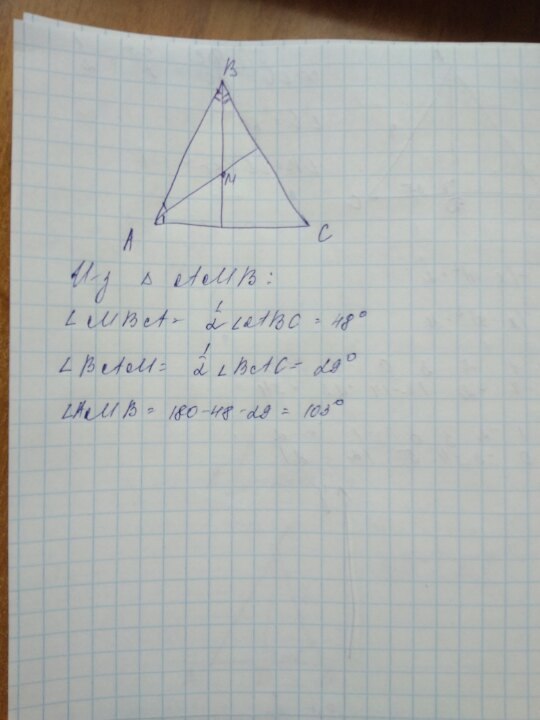 B
M
A
C
Из △ AMB:
∠MBA = 1/2 ∠ABC = 48°
∠BAM = 1/2 ∠BAC = 29°
∠AMB = 180-48-29 = 103°